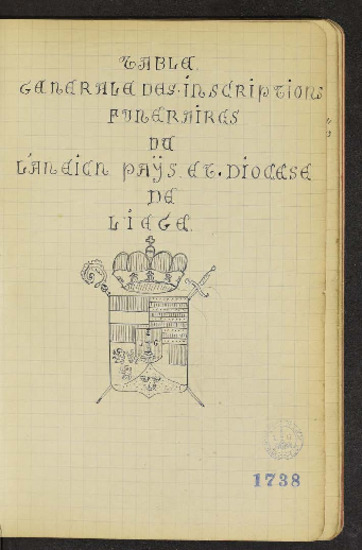 TABLE
GENERALE DES INSCRIPTIONS
FUNERAIRES
DU
L'ANCIEN PAŸS ET DIOCESE
DE
LIEGE
1738